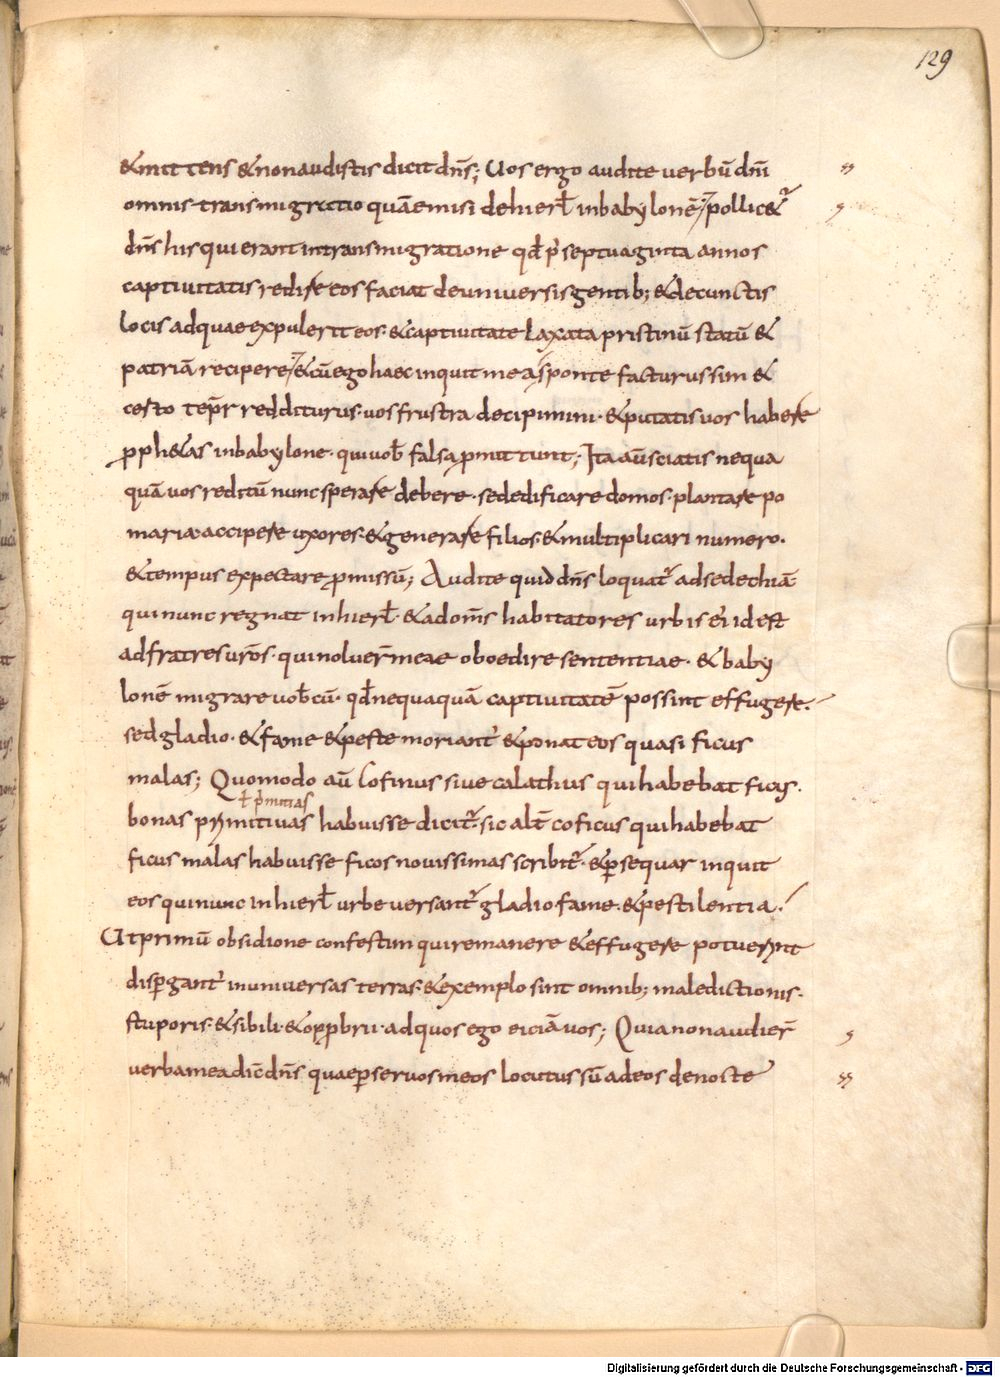 129
&mittens & non audistis dicit dn̅s; Uos ergo audite uerbū dn̅i
omnis transmigratio quā emisi de hierƚ in babylonē; pollic&ur
dn̅s his qui erant in transmigratione qđ p̍ septuaginta annos
captiuitatis redire eos faciat de uniuersis gentib; & de cunctis
locis ad quae expulerit eos. & captiuitate laxata pristinū statū &
patriā recipere; & cū ego haec inquit mea sponte facturus sim &
certo tēpr redditurus. uos frustra decipimini. & putatis uos habere
pph&as in babylone. qui uoƀ falsa pmittunt; Ita aū sciatis nequa
quā uos reditū nunc sperare debere. sed edificare domos. plantare po
maria. accipere uxores. & generare filios. & multiplicari numero.
& tempus expectare pmissū; Audite quid dn̅s loquat᷒ ad sedechiā
qui nunc regnat in hierƚ. & ad om̅s habitatores urbis ei᷒ id est
ad fratres ur̅os. qui noluer̅ meae oboedire sententiae. & baby
lonē migrare uoƀcū. qđ nequaquā captiuitatē possint effugere.
sed gladio. & fame & peste moriant᷒ & ponat eos quasi ficus
malas; Quomodo aū cofinus siue calathus qui habebat ficus
ƚ p̍mitias
bonas primitiuas habuisse dicit᷒. sic alt̅ coficus qui habebat
ficus malas habuisse ficos nouissimas scribit᷒. & psequar inquit
eos qui nunc in hierƚ urbe uersant᷒ gladio. fame. & pestilentia.
Ut primū obsidione confestim qui remanere & effugere potuerint
dispgant᷒ in uniuersas terras. & exemplo sint omnib; maledictionis.
stuporis. & sibili. & opprbrii. ad quos ego eiciā uos; Quia non audier̅
uerba mea dic̅ dn̅s quae p seruos meos locutus sū ad eos de nocte
Digitalisierung gefördert durch die Deutsche Forschungsgemeinschaft - DFG